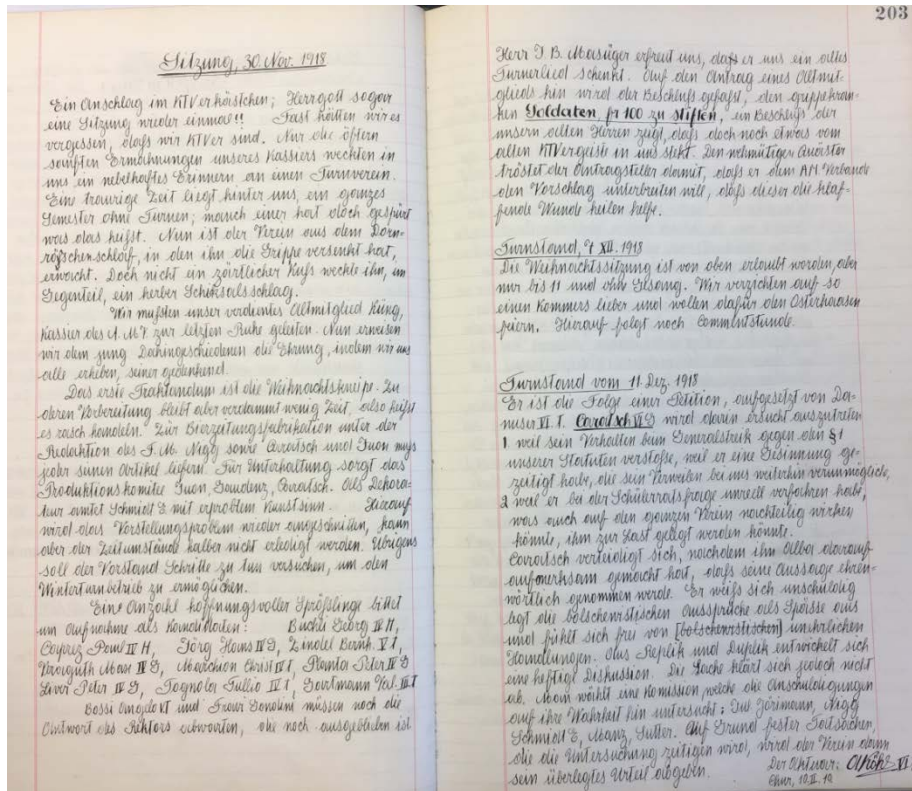 Sitzung, 30. Nov. 1918
Ein Anschlag im KTVerkästchen; Herrgott sogar
eine Sitzung wieder einmal!! Fast hätten wir es
vergessen, dafs wir KTVer sind. Nur die öftern
sanften Ermahnungen unseres Kassiers weckten in
uns ein nebelhaftes Erinnern an einen Turnverein.
Eine traurige Zeit liegt hinter uns, ein ganzes
Semester ohne Turnen; manch einer hat doch gespürt
was das heifst. Nun ist der Verein aus dem Dorn-
röschenschlaf, in den ihn die Grippe versenkt hat,
erwacht. Doch nicht ein zärtlicher Kufs weckte ihn, im
Gegenteil, ein herber Schicksalsschlag.
Wir mufsten unser verdientes Altmitglied Küng,
Kassier des A.M.V. zur letzten Ruhe geleiten. Nun erweisen
wir dem jung Dahingeschiedenen die Ehrung, indem wir uns
alle erheben, seiner gedenkend.
Das erste Traktandum ist die Weihnachtskneipe. Zu
deren Vorbereitung bleibt aber verdammt wenig Zeit, also heifst
es rasch handeln. Zur Bierzeitungsfabrikation unter der
Redaktion des F.M. Nigg sowie Caratsch und Juon mufs
jeder seinen Artikel liefern. Für Unterhaltung sorgt das
Produktionskomitee Juon, Gaudenz, Caratsch. Als Dekora-
teur amtet Schmidt E mit erprobtem Kunstsinn. Hierauf
wird das Vorstellungsproblem wieder angeschnitten, kann
aber der Zeitumstände halber nicht erledigt werden. Übrigens
soll der Vorstand Schritte zu tun versuchen, um den
Winterturnbetrieb zu ermöglichen.
Eine Anzahl hoffnungsvoller Spröfslinge bittet
um Aufnahme als Kandidaten: Buchli Georg IV H,
Caprez Paul IV H, Jörg Hans IV G, Zindel Bernh. V T,
Versguth Max IV G, Marchion Christ IV T, Planta Peter IV G
Liver Peter IV G, Tognola Tullio IV T, Gartmann Val. III T
Bossi Angelo VI und Gianolini müssen noch die
Antwort des Rektors abwarten, die noch ausgeblieben ist
203
Herr J. B. Masüger erfreut uns, dafs er uns ein altes
Turnerlied schenkt. Auf den Antrag eines Altmit-
glieds hin wird der Beschlufs gefafst, den grippekran-
ken Soldaten, fr 100 zu stiften, ein Beschlufs der
unsern alten Herren zeigt, dafs doch noch etwas vom
alten KTVergeiste in uns stekt. Den wehmütigen Quästor
tröstet der Antragsteller damit, dafs er dem AM Verbande
den Vorschlag unterbreiten will, dafs dieser die klaf-
fende Wunde heilen helfe.
Turnstand, 7. XII. 1918
Die Weihnachtssitzung ist von oben erlaubt worden, aber
nur bis 11 und ohne Gesang. Wir verzichten auf so
einen Kommers lieber und wollen dafür den Osterhasen
feiern. Hierauf folgt noch Commentstunde.
Turnstand vom 11. Dez. 1918
Er ist die Folge einer Petition, aufgesetzt von Da-
nuser VI T. Caratsch VI G wird darin ersucht auszutreten
1 weil sein Verhalten beim Generalstreik gegen den § 1
unserer Statuten verstofse, weil er eine Gesinnung ge-
zeitigt habe, die sein Verweilen bei uns weiterhin verunmögliche,
2 weil er bei der Schülerratsfrage unreell verfahren habe,
was auch auf den ganzen Verein nachteilig wirken
könnte, ihm zur Last gelegt werden könnte.
Caratsch verteidigt sich, nachdem ihn Albá darauf
aufmerksam gemacht hat, dafs seine Aussage ehren-
wörtlich genommen werde. Er weifs sich unschuldig
legt die bolschewistischen Aussprüche als Spässe aus
und fühlt sich frei von [bolschewistischen] unehrlichen
Handlungen. Aus Replik und Duplik entwickelt sich
eine heftige Diskussion. Die Sache klärt sich jedoch nicht
ab. Man wählt eine Komission, welche die Anschuldigungen
auf ihre Wahrheit hin untersucht: Zörimann, Nigg
Schmidt E, Manz, Sutter. Auf Grund fester Tatsachen,
die die Untersuchung zeitigen wird, wird der Verein dann
sein überlegtes Urteil abgeben.
Der Aktuar:
Chur, 10. II. 19